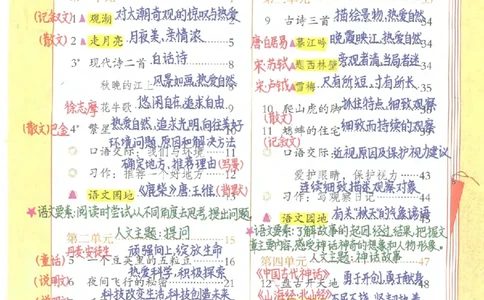 (记叙文) 1 ▲ 观潮 对大潮奇观的惊叹与热爱
(散文) 2 ▲ 走月亮 月夜美,亲情浓 5
3* 现代诗二首 白话诗
秋晚的江上 风景如画,热爱自然
徐志摩 花牛歌 悠闲自在,追求自由 9
(散文) 巴金 4* 繁星 热爱自然,追求光明,向往美好 10
口语交际:我们与环境 环境问题,原因和解决方法 11
习作:推荐一个好地方 确定地方,推荐理由(写景)
▲ 语文园地 《鹿柴》唐·王维(背默)
★语文要素:阅读时尝试从不同角度去思考,提出问题.
第二单元 人文主题:提问 15
(童话) 5 一个豆荚里的五粒豆 顽强向上,绽放生命
(说明文) 6 夜间飞行的秘密 热爱科学,积极探索
科技改变生活,科技创造未来
9 古诗三首 描绘景物,热爱自然 34
唐·白居易 ▲暮江吟 晚霞映江,热爱自然
宋·苏轼 ▲题西林壁 旁观者清,当局者迷
宋·卢钺 ▲雪梅 尺有所短,寸有所长 35
10 爬山虎的脚 抓住特点,细致观察
(散文)
11 蟋蟀的住宅 细致而持续的观察
(记叙文)
口语交际:近视原因及保护视力建议
爱护眼睛,保护视力
习作:写观察日记 连续细致描述观察对象
▲ 语文园地
★语文要素:了解故事的起因、经过、结果,把握文
主要内容,感受神话中神奇的想象和人物形象.
第四单元 人文主题:神话故事 47
《中国古代神话》 12 盘古开天地 勇于开创,勇于献身 48
《山海经·北山经》